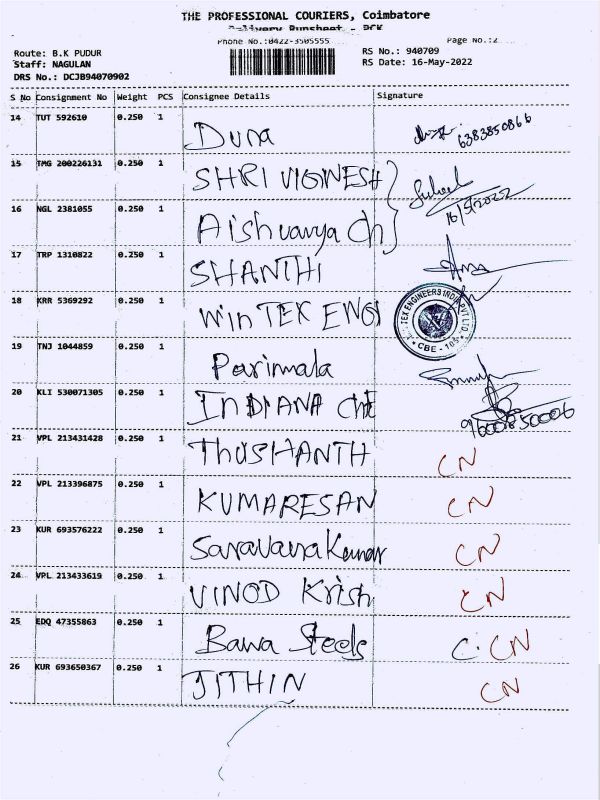 THE PROFESSIONAL COURIERS, Coimbatore
Delivery Runsheet - PCK
Phone No.:0422-3505555 Page No.:2
Route: B.K PUDUR RS No.: 940709
Staff: NAGULAN RS Date: 16-May-2022
DRS No.: DCJB94070902
S No Consignment No Weight PCS Consignee Details Signature
14 TUT 592610 0.250 1 Dura 6383850866
15 TMG 200226131 0.250 1 SHRI VIGINESH 16/5/2022
16 NGL 2381055 0.250 1 Aishwarya Ch
17 TRP 1310822 0.250 1 SHANTHI
18 KRR 5369292 0.250 1 Win TEX ENGI TEX ENGINEERS INDIA PVT LTD. CBE - 105
19 TNJ 1044859 0.250 1 Parimala
20 KLI 530071305 0.250 1 INDIANA CHE 9600850006
21 VPL 213431428 0.250 1 THUSHANTH CN
22 VPL 213396875 0.250 1 KUMARESAN CN
23 KUR 693576222 0.250 1 Saravana Kumar CN
24 VPL 213433619 0.250 1 VINOD Krish CN
25 EDQ 47355863 0.250 1 Bawa Steels C. CN
26 KUR 693650367 0.250 1 JITHIN CN